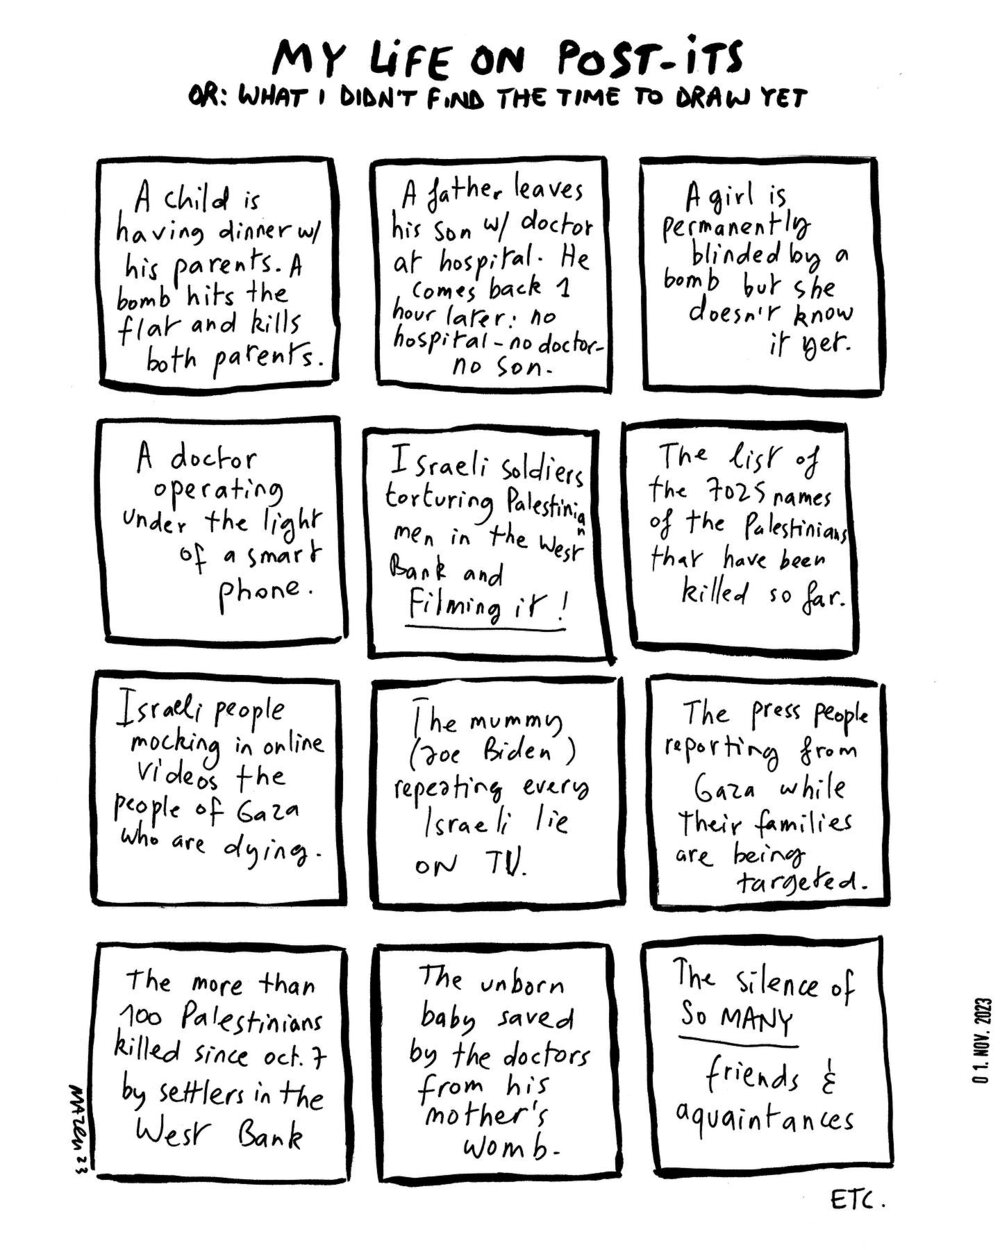 MY LiFE ON POST-iTS
OR: WHAT I DIDN'T FIND THE TIME TO DRAW YET
A child is
having dinner w/
his parents. A
bomb hits the
flat and kills
both parents.
A father leaves
his son w/ doctor
at hospital. He
comes back 1
hour later: no
hospital - no doctor-
no son.
A girl is
permanently
blinded by a
bomb but she
doesn't know
it yet.
A doctor
operating
under the light
of a smart
phone.
Israeli soldiers
torturing Palestinian
men in the West
Bank and
Filming it!
The list of
the 7025 names
of the Palestinians
that have been
killed so far.
Israeli people
mocking in online
videos the
people of Gaza
who are dying.
The mummy
(Joe Biden)
repeating every
Israeli lie
ON TV.
The press people
reporting from
Gaza while
their families
are being
targeted.
The more than
100 Palestinians
killed since oct. 7
by settlers in the
West Bank
The unborn
baby saved
by the doctors
from his
mother's
womb.
The silence of
So MANY
friends &
aquaintances
MAZEN 23
ETC.
01. NOV. 2023